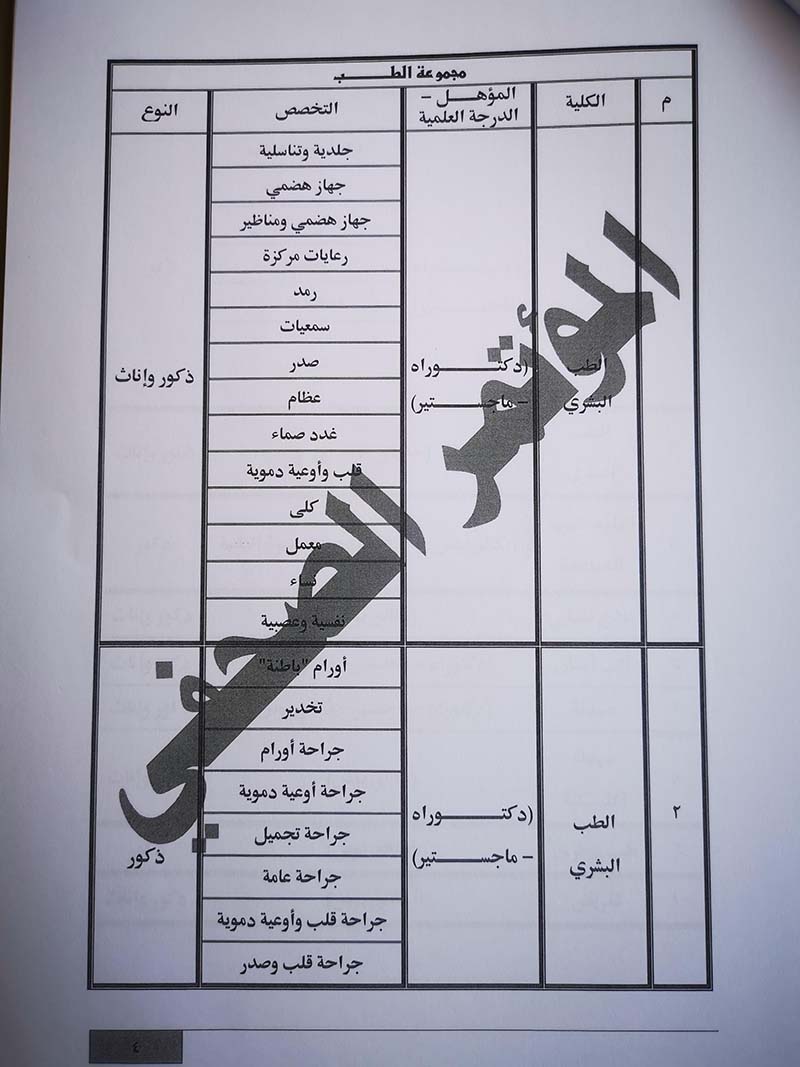 مجموعة الطـــب
م
الكلية
المؤهـــل –
الدرجة العلمية
التخصص
النوع
الطب
البشري
(دكتـــــــوراه
– ماجســـــتير)
جلدية وتناسلية
جهاز هضمي
جهاز هضمي ومناظير
رعايات مركزة
رمد
سمعيات
صدر
عظام
غدد صماء
قلب وأوعية دموية
كلى
معمل
نساء
نفسية وعصبية
ذكور وإناث
٢
الطب
البشري
(دكتـــــــوراه
– ماجســـــتير)
أورام "باطنة"
تخدير
جراحة أورام
جراحة أوعية دموية
جراحة تجميل
جراحة عامة
جراحة قلب وأوعية دموية
جراحة قلب وصدر
ذكور
المؤتمر الصحفي
٤